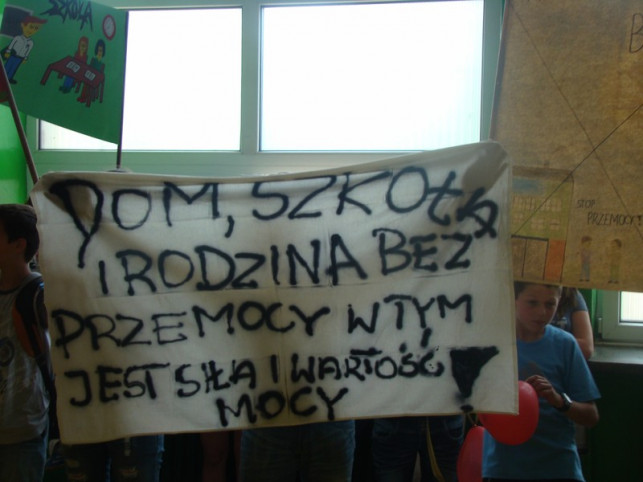 SZKOŁA
DOM, SZKOŁA
I RODZINA BEZ
PRZEMOCY W TYM
JEST SIŁA I WARTOŚĆ
MOCY
B
STOP
PRZEMOCY